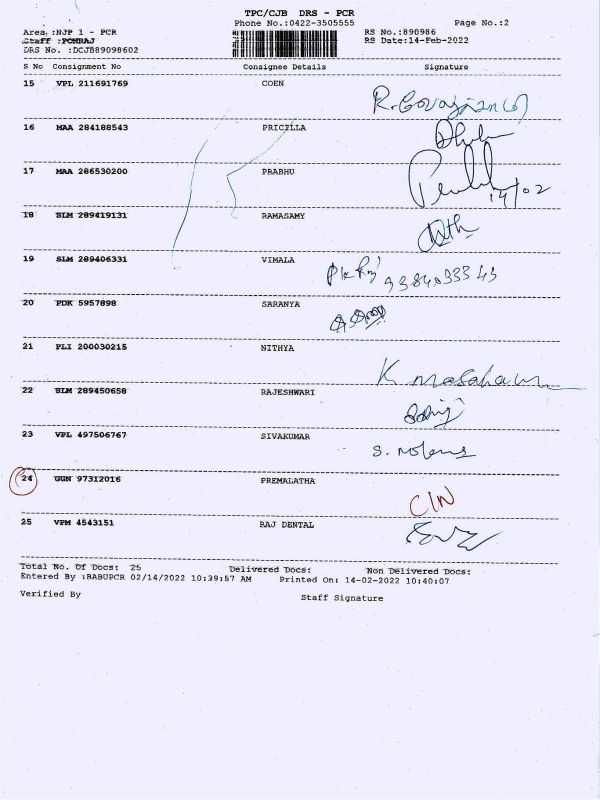 TPC/CJB DRS - PCR
Phone No.:0422-3505555 Page No.:2
Area :NJP 1 - PCR RS No.:890986
Staff :PONRAJ RS Date:14-Feb-2022
DRS No. :DCJB89098602
S No Consignment No Consignee Details Signature
15 VPL 211691769 COEN
16 MAA 284188543 PRICILLA
17 MAA 286530200 PRABHU
14/02
18 SLM 289419131 RAMASAMY
19 SLM 289406331 VIMALA
9384033343
20 PDK 5957898 SARANYA
21 PLI 200030215 NITHYA
K
22 SLM 289450658 RAJESHWARI
23 VPL 497506767 SIVAKUMAR
S.
24 GGN 973I2016 PREMALATHA
C/N
25 VPM 4543151 RAJ DENTAL
Total No. Of Docs: 25 Delivered Docs: Non Delivered Docs:
Entered By :BABUPCR 02/14/2022 10:39:57 AM Printed On: 14-02-2022 10:40:07
Verified By Staff Signature